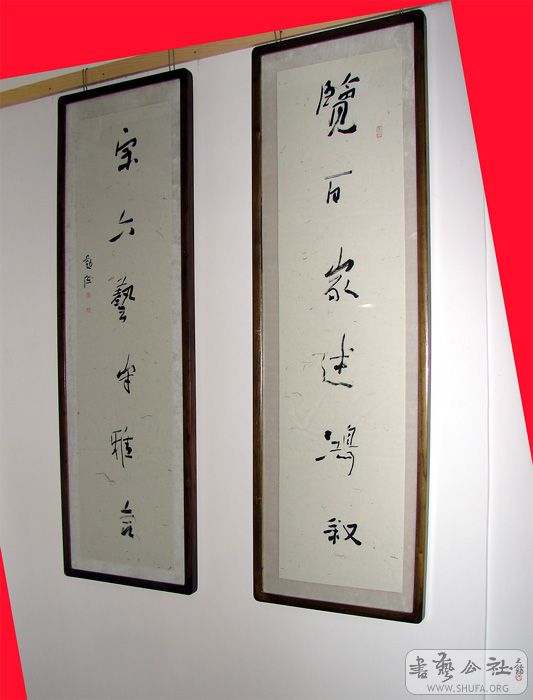 覽百家述鴻叙
宗六藝守雅言
書藝公社
WWW.SHUFA.ORG